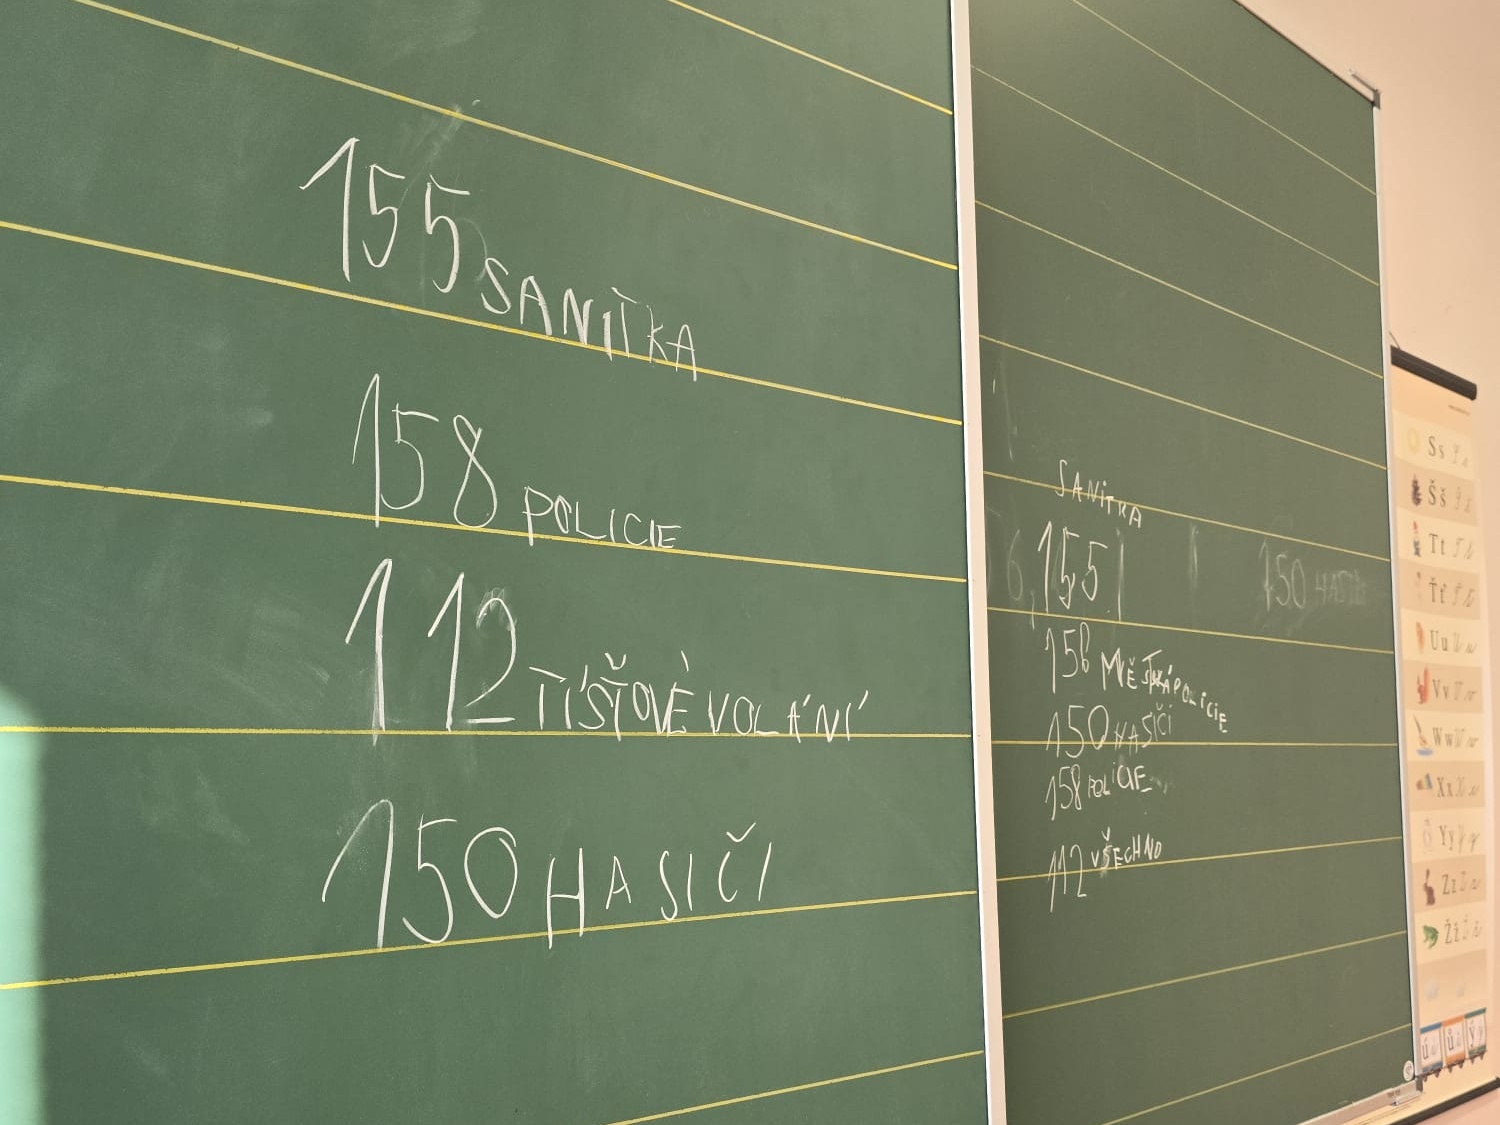 155 SANITKA
158 POLICIE
112 TÍSŤOVÉ VOLÁNÍ
150 HASIČI
SANITKA
155
150
156 MĚSTSKÁ POLICIE
150 HASIČI
158 POLICIE
112 VŠECHNO
Ss
Šš
Tt
Ťť
Uu
Vv
Ww
Xx
Yy
Zz
Žž
ú ů ý